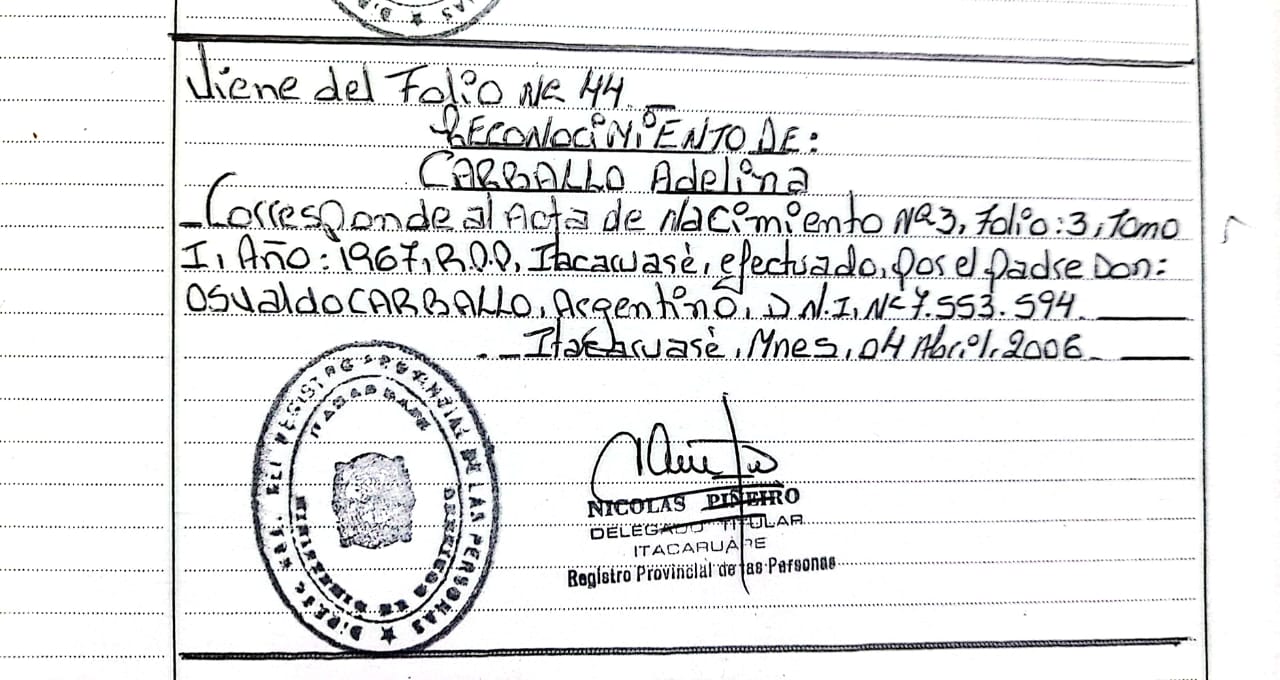 Viene del Folio Nº 44
RECONOCIMIENTO DE:
CARBALLO Adelina
Corresponde al Acta de Nacimiento Nº 3, Folio: 3, Tomo
I, Año: 1967, R.P.P, Itacaruaré, efectuado, por el padre Don:
Osvaldo CARBALLO, Argentino, D.N.I, Nº 7.553.594.
Itacaruaré, Mnes, 04 Abril, 2006
REGISTRO PROVINCIAL DE LAS PERSONAS
NICOLAS PIÑEIRO
DELEGADO TITULAR
ITACARUARE
Registro Provincial de las Personas